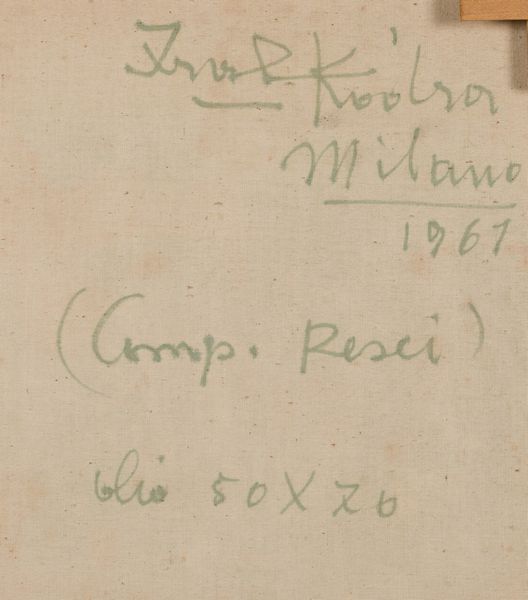 Ibrahim Kodra
Milano
1961
(Comp. Pesci)
olio 50 X 70